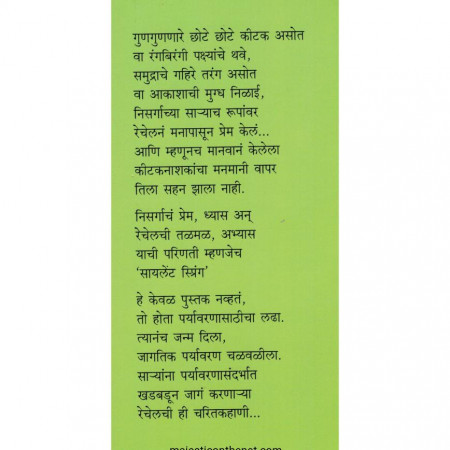 गुणगुणणारे छोटे छोटे कीटक असोत
वा रंगबिरंगी पक्ष्यांचे थवे,
समुद्राचे गहिरे तरंग असोत
वा आकाशाची मुग्ध निळाई,
निसर्गाच्या साऱ्याच रूपांवर
रेचेलनं मनापासून प्रेम केलं...
आणि म्हणूनच मानवानं केलेला
कीटकनाशकांचा मनमानी वापर
तिला सहन झाला नाही.
निसर्गाचं प्रेम, ध्यास अन्
रेचेलची तळमळ, अभ्यास
याची परिणती म्हणजेच
‘सायलेंट स्प्रिंग’
हे केवळ पुस्तक नव्हतं,
तो होता पर्यावरणासाठीचा लढा.
त्यानंच जन्म दिला,
जागतिक पर्यावरण चळवळीला.
साऱ्यांना पर्यावरणासंदर्भात
खडबडून जागं करणाऱ्या
रेचेलची ही चरितकहाणी...
majesticonthenet.com